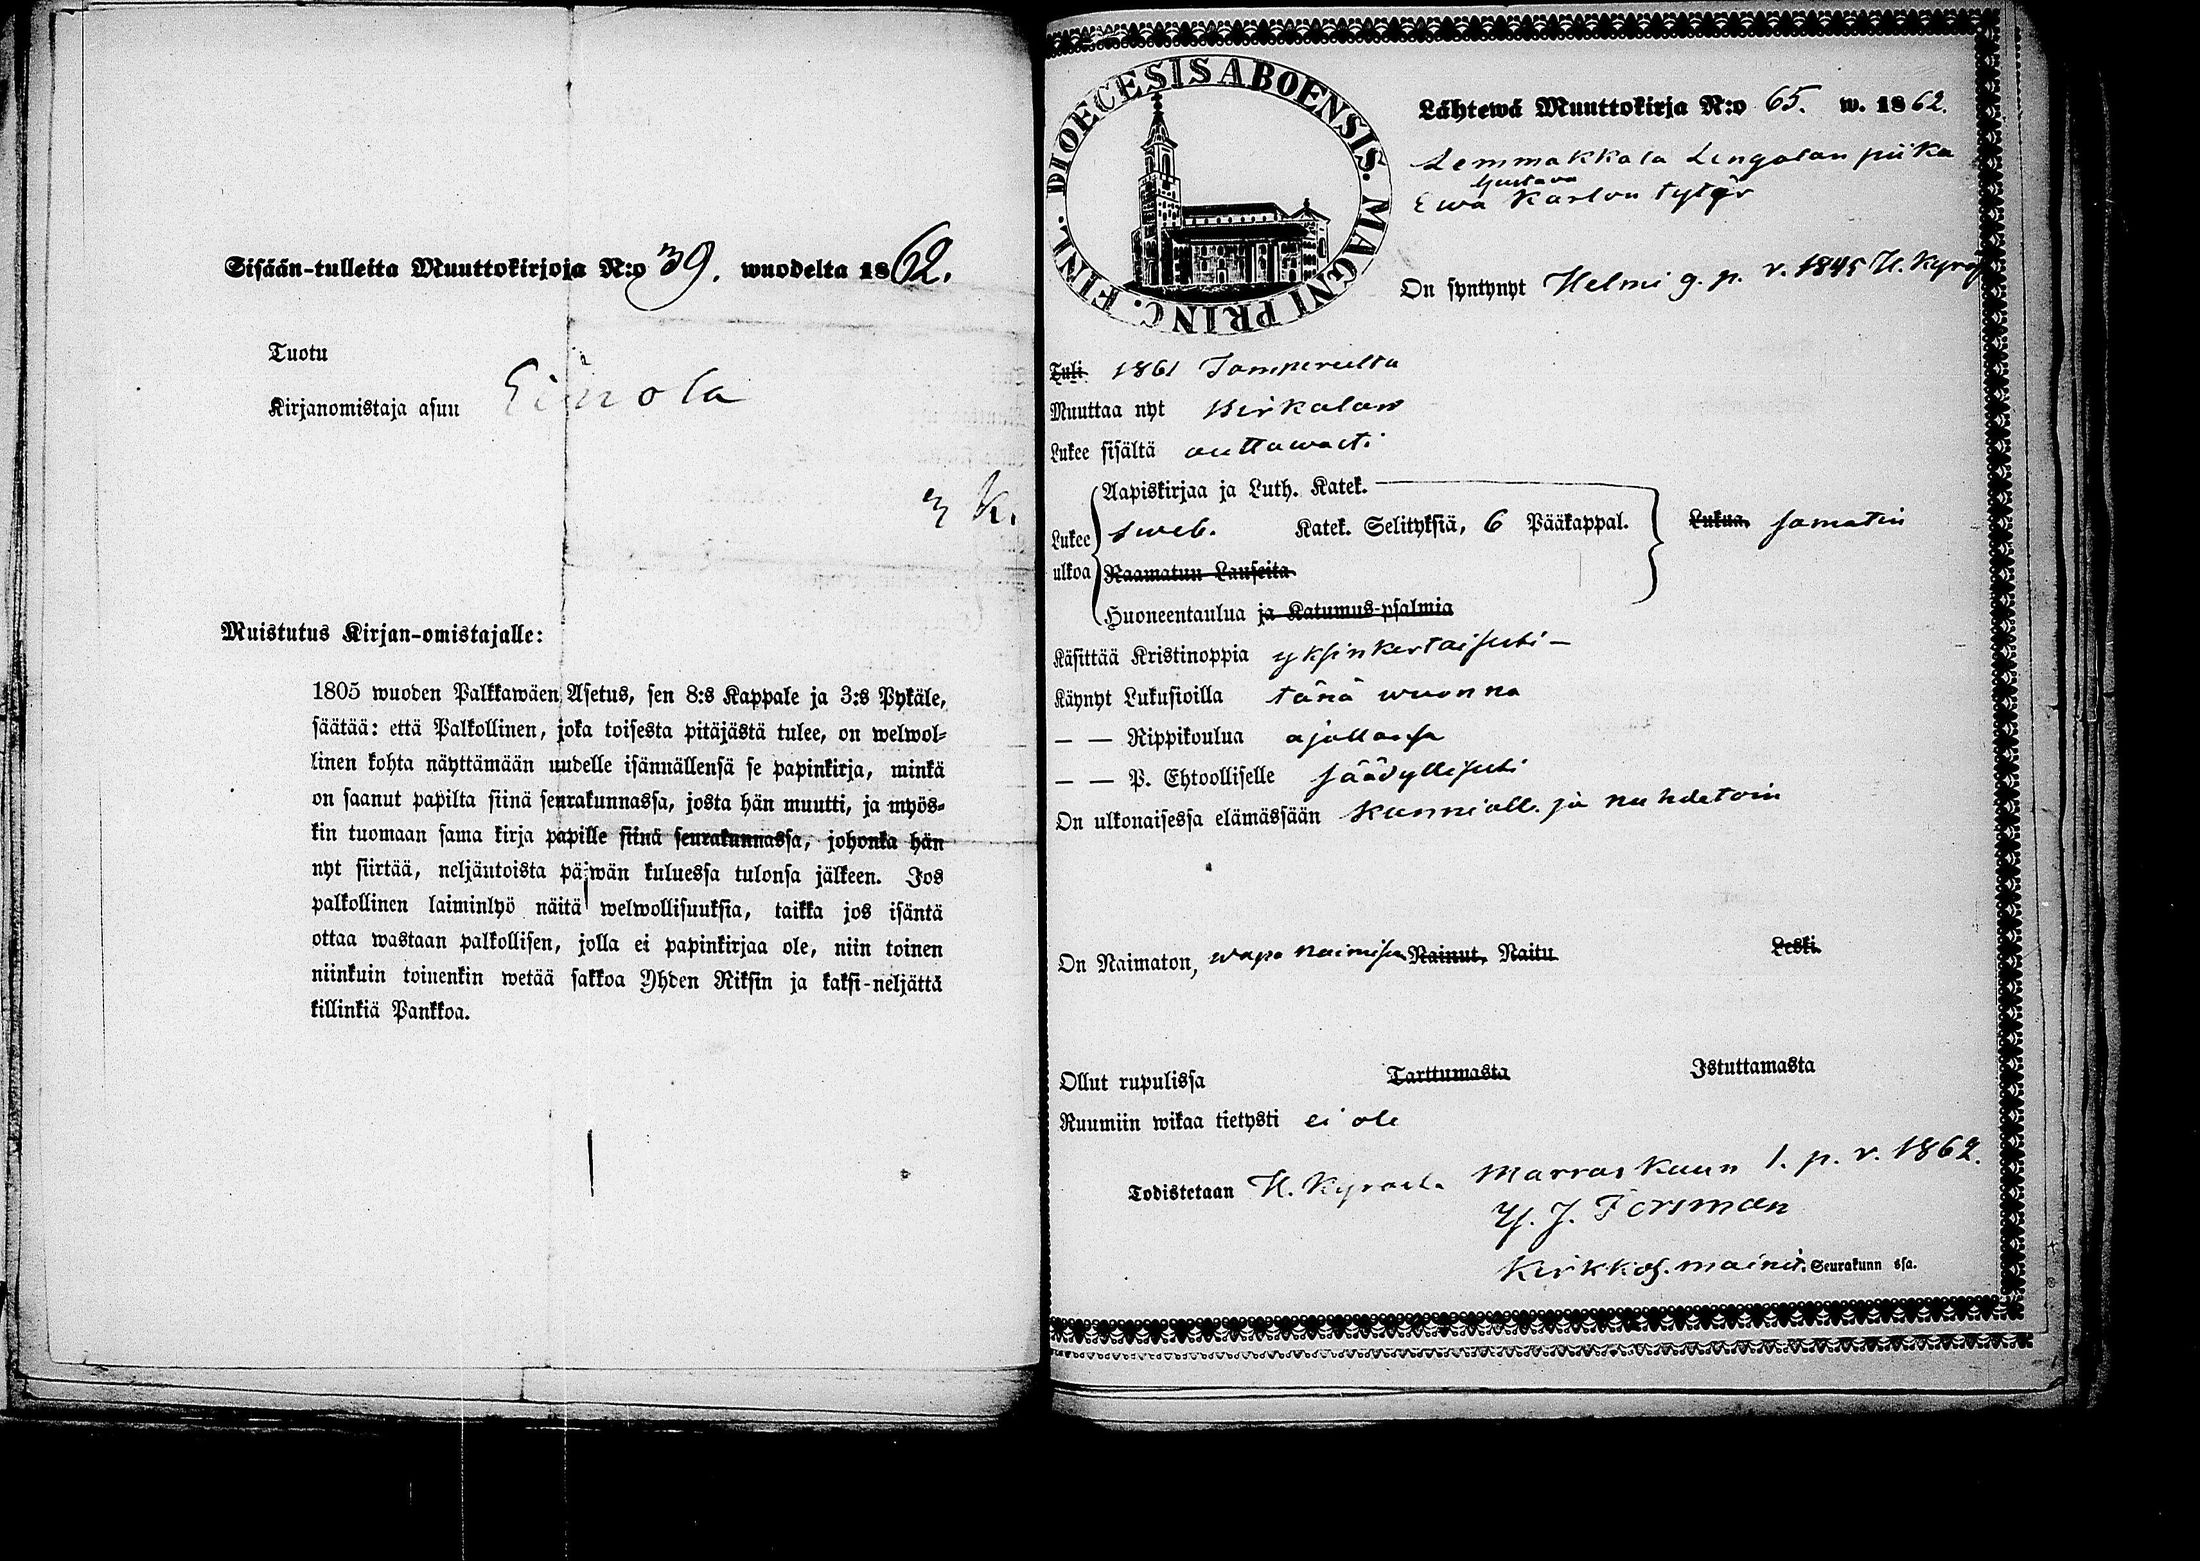 Sisään-tulleita Muuttokirjoja N:o 39. wuodelta 1862.
Tuotu
Kirjanomistaja asuu Einola
3 K.
Muistutus Kirjan-omistajalle:
1805 wuoden Palkkawäen Asetus, sen 8:s Kappale ja 3:s Pykäle,
säätää: että Palkollinen, joka toisesta pitäjästä tulee, on welwol-
linen kohta näyttämään uudelle isännällensä se papinkirja, minkä
on saanut papilta siinä seurakunnassa, josta hän muutti, ja myös-
kin tuomaan sama kirja papille siinä seurakunnassa, johonka hän
nyt siirtää, neljäntoista päiwän kuluessa tulonsa jälkeen. Jos
palkollinen laiminlyö näitä welwollisuuksia, taikka jos isäntä
ottaa wastaan palkollisen, jolla ei papinkirjaa ole, niin toinen
niinkuin toinenkin wetää sakkoa Yhden Riksin ja kaksi-neljättä
killinkiä Pankkoa.
DIOECESIS ABOENSIS. MAGNI PRINC. FINL.
Lähtewä Muuttokirja N:o 65. w. 1862.
Lemmakkala Lengolan piika
Gustava
Ewa Karlon tytär
On syntynyt Helmi 9. p. v. 1845 H. Kyrös
Tuli 1861 Tampereelta
Muuttaa nyt Birkalaan
Lukee sisältä auttawasti
Aapiskirjaa ja Luth. Katek.
Lukee ulkoa sweb. Katek. Selityksiä, 6 Pääkappal. Lukua
Raamatun Lauseita
Huoneentaulua ja Katumus-psalmia
Käsittää Kristinoppia yksinkertaisesti –
Käynyt Lukusioilla tänä wuonna
— — Rippikoulua ajallansa
— — P. Ehtoolliselle säädyllisesti
On ulkonaisessa elämässään kunniall. ja nuhdetoin
On Naimaton, wapa naimisen Nainut, Naitu Leski
Ollut rupulissa Tarttumasta Istuttamasta
Ruumiin wikaa tietysti ei ole
Todistetaan H. Kyrössä Marraskuun 1. p. v. 1862.
J. Forsman
Kirkkoh. mainit. Seurakunn ssa.